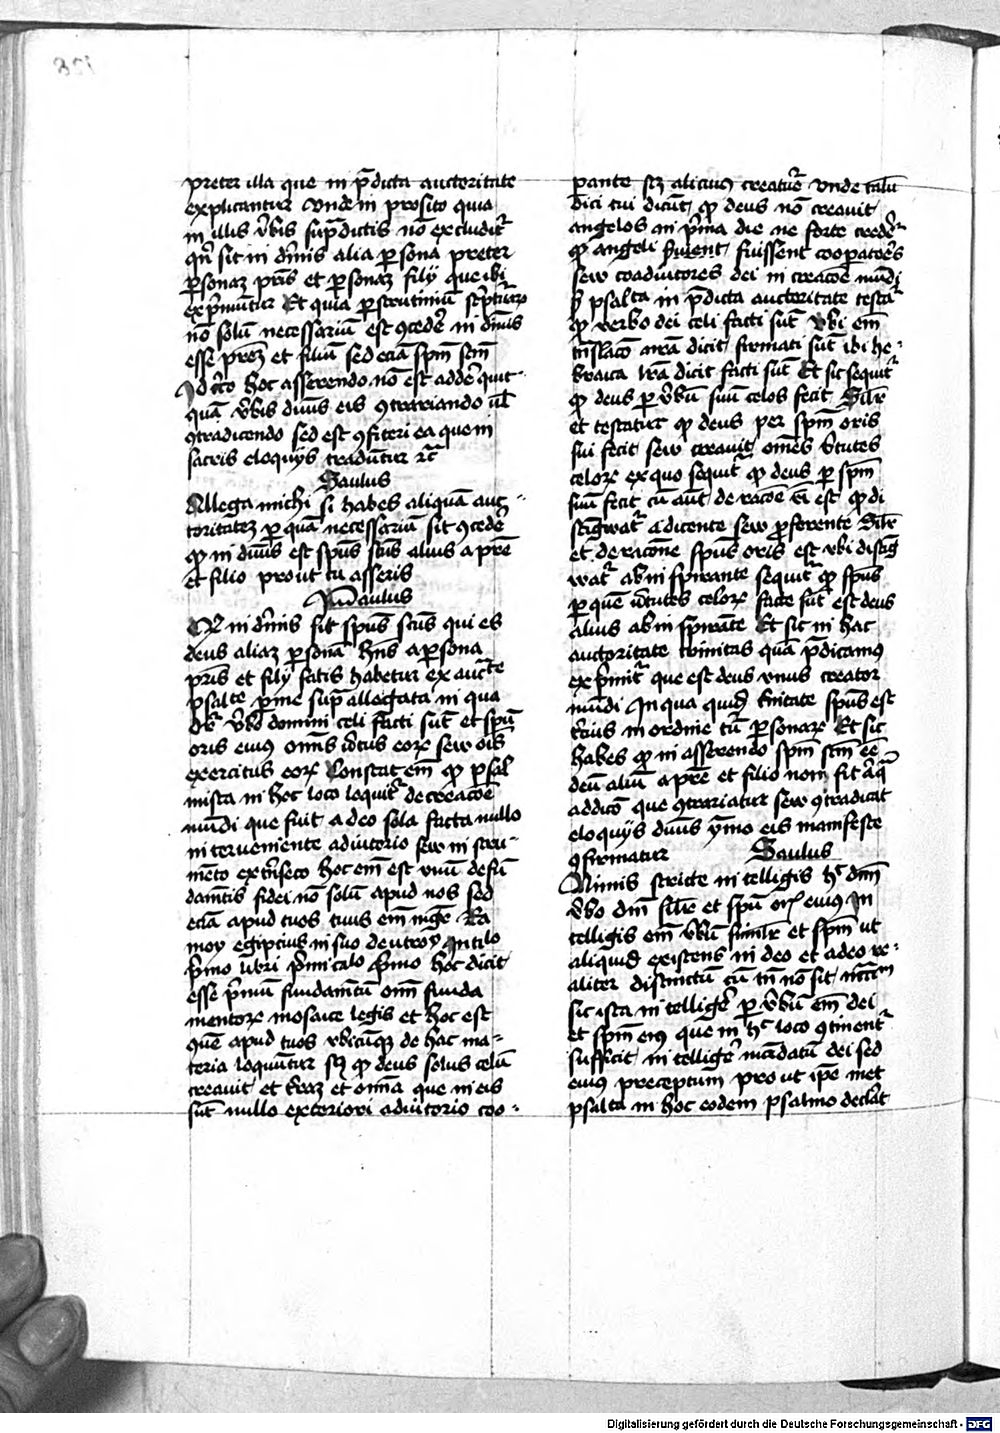 preter illa que in p̄dicta auctoritate
explicantur Unde in proſito quia
in illis v̓bis sup̄dictis nō excludit᷑
qn̄ sit in diuīs alia ꝑsona preter
ꝑsonaꝫ pr̄is et ꝑsonaꝫ filij que ibi
exp̓muntur Et quia ꝑ scrutiniū sc̓pturaꝝ
nō solū necessariū est ꝯcedē in diuīs
esse pr̄eꝫ et filiū sed eciā sp̄m sc̄m
Idc̓co hoc asserendo nō est addē quit-
quā v̓bis diuīs eis ꝯtrariando ul̄
ꝯtradicendo sed est ꝯfiteri ea que in
sacris eloquijs traduntur ⁊c̄
Saulus
Allega michi si habes aliquā auc-
toritateꝫ ꝑ quā necessariū sit ꝯcedē
ꝙ in diuīs est sp̄us sc̄us alius a pr̄e
et filio prout tu asseris
Paulus
Q in diuīs sit sp̄us sc̄us qui est
deus aliaꝫ ꝑsonā hn̄s a ꝑsona
pr̄is et filij satis habetur ex auct̄te
psalte p̓me sup̄ allegata in qua
dr̄ v̓bo domini celi facti sūt et sp̄u
oris eius om̄is v̓tus eoꝝ seu oīs
exercitus eoꝝ Constat em̄ ꝙ psal
mista in hoc loco loquit᷑ de creacōe
mūdi que fuit a deo sola facta nullo
interueniente adiutorio seu instru-
mēto extrīseco hoc em̄ est vnū de fū
damētis fidei nō solū apud nos sed
eciā apud tuos tuus em̄ mḡr Ra
moy egipcius in suo deutroy In tl̓o
p̓mo libri p̓mi calo p̓mo hoc dicit
esse p̓mū fundamētū om̄ funda
mentoꝝ mosaice legis et hoc est
qūe apud tuos vbicūqꝫ de hac ma-
teria loquūntur sꝫ ꝙ deus solus celū
creauit et terraꝫ et om̄ia que in eis
sūt nullo exteriori adiutorio coo-
pante sꝫ alicuiꝰ creature Unde
dici tui dicūt ꝙ deus nō creauit
angelos in p̓ma die ne forte credēt᷑
ꝙ angeli fuissent cooꝑatoēs
seu coadiutores dei in creacōe mūdi
psalta in p̄dicta auctoritate testat᷑
ꝙ verbo dei celi facti sūt Ubi em̄
trāslacō nr̄a dicit firmati sūt ibi he-
braica lr̄a dicit facti sūt Et sic sequit᷑
ꝙ deus ꝑ v̓bū suū celos fecit Silr̄
et testatur ꝙ deus per sp̄m oris
sui fecit seu creauit om̄es v̓tutes
celoꝝ ex quo sequit᷑ ꝙ deus ꝑ sp̄m
suū fecit cū aūt de racōe v̓bi est ꝙ di
stīgwat᷑ a dicente seu ꝓferente Silr̄
et de racōne sp̄us oris est vbi distīg
wat᷑ ab inspirante sequit᷑ ꝙ sp̄us
ꝑ quē v̓tutes celoꝝ facte sūt est deus
alius ab inspirāte Et sic in hac
auctoritate trinitas quā p̄dicamꝰ
exp̓mit᷑ que est deus vnus creator
mūdi In qua quidē t̓nitate sp̄us est
t̓cius in ordine tn̄ ꝑsonaꝝ Et sic
habes ꝙ in asserendo sp̄m sc̄m eē
deū aliū a pr̄e et filio non fit aꝗ̄
addicō que ꝯtrariatur seu ꝯtradicat
eloquijs diuīs ymo eis manifeste
ꝯfirmatur
Saulus
Nimis stricte intelligis h̄ dictū
v̓bo dn̄i et sp̄u oris eius In
telligis em̄ v̓bū et sp̄m ut
aliquid existens in deo et adeo re-
aliter distinctū cū tn̄ nō sit
sic ista intelligē ꝑ v̓bū em̄ dei
et sp̄m eius que in h̄ loco ꝯtinent᷑
sufficit intelligē mādatū dei seu
eius preceptum prout ip̄e met
psalta in hoc eodem psalmo declat